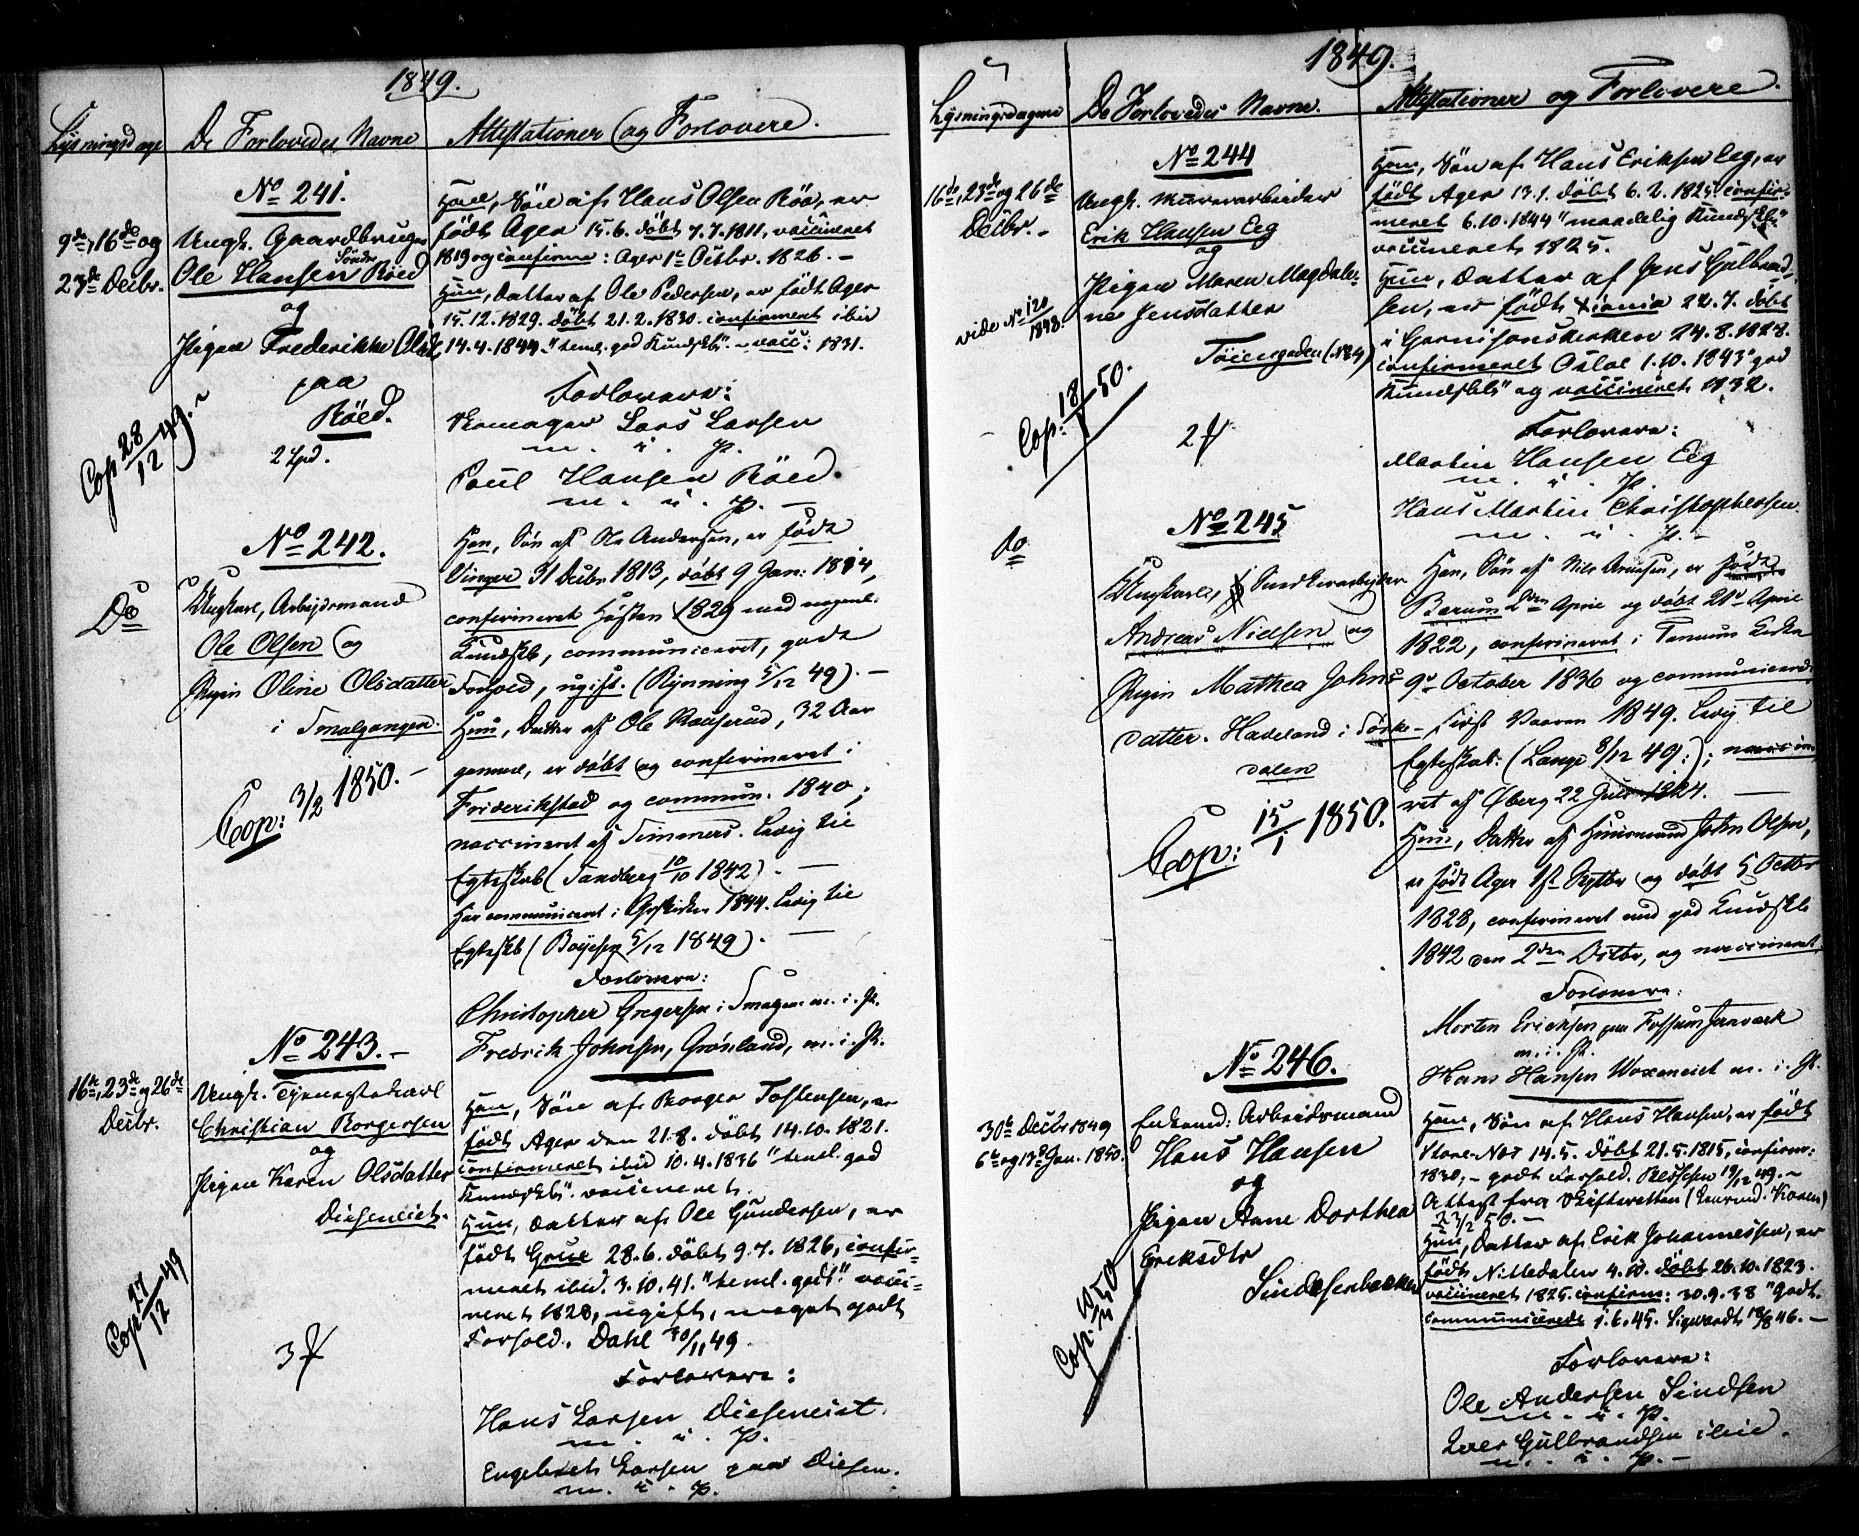 1849.
Lysningsdage
De Forlovedes Navne
Attestationer og Forlovere.
No 241.
9de, 16de og
23de Decbr.
Ungk. Gaardbruger
Ole Hansen Søndr Røed
og
Pigen Frederikke Olsd.
paa
Røed.
2 Spd.
Cop 28/12 49.
Han, Søn af Hans Olsen Röd, er
födt Ager 15.6. döbt 7.7.1811, vaccineret
1819 og confirm: Ager 1e Octbr. 1826. –
Hun, Datter af Ole Pedersen, er födt Ager
15.12.1829. döbt 21.2.1830. confirmeret ibid
14.4.1844. "teml. god Kundskb". – vacc: 1831.
Forlovere:
Skomager Lars Larsen
m. i. P.
Poul Hansen Röed.
m. i. P. –
No 242.
Do
Ungkarl, Arbejdsmand
Ole Olsen og
Pigen Oline Olsdatter
i Smalgangen.
Cop: 3/2 1850. –
Han, Søn af Ole Andersen, er födt
Vinger 31 Decbr 1813, döbt 9 Jan: 1814,
confirmeret Høsten 1829 med megenl.
Kundskb, communiceret, godt
Forhold, ugift. (Rynning 5/12 49). –
Hun, Datter af Ole Rauserud, 32 Aar
gammel, er döbt og confirmeret i
Friderikstad og commun. 1840;
vaccineret af Simmers. Ledig til
Egteskab (Tandberg 10/10 1842). –
Har communiceret i Gskirken 1844. Ledig til
Egteskb (Boyesen 5/12 1849). –
Forlovere:
Christopher Gregersen i Smalgan. m. i. P.
Fredrik Johnsen, Grønland, m. i. P.
No 243. –
16de, 23de og 26de
Decbr.
Ungk. Tjenestekarl
Christian Borgersen
og
Pigen Karen Olsdatter
Dieseneiet.
Cop 27/12 49
3
Han, Søn af Borger Tostensen, er
födt Ager den 21.8. döbt 14.10.1821.
confirmeret ibid 10.4.1836 "teml. god
Kundskb". vaccineret.
Hun, Datter af Ole Gundersen, er
födt Grue 28.6. döbt 9.7.1826, confir-
meret ibid. 3.10.41. "teml. godt." vacci-
neret 1828, ugift, meget godt
Forhold. Dahl 30/11 49.
Forlovere:
Hans Larsen Dieseneiet.
m. i. P.
Engebret Larsen paa Diesen.
m. i. P.
1849.
Lysningsdagene
De Forlovedes Navne.
Attestationer og Forlovere.
No 244
16de, 23de og 26de
Decbr. –
vide No 120/1848.
Ungk. Murerarbeider
Erik Hansen Eeg
og
Pigen Maren Magdale-
ne Jensdatter
Töiengaden (No 29)
Cop: 18/1 50.
2
Han, Søn af Hans Eriksen Eeg, er
födt Ager 13.1. döbt 6.2.1825 confir-
meret 6.10.1844 "maadelig Kundskb"
vaccineret 1825.
Hun, Datter af Jens Gulbrand-
sen, er födt Xiania 22.7. döbt
i Garnisonskirken 24.8.1828.
confirmeret Osloe 1.10.1843 "god
Kundskb" og vaccineret 1832.
Forlovere:
Martin Hansen Eeg
m. i. P.
Hans Martin Christophersen.
m. i. P. –
No 245
do
Ungkarl, Snedkerarbejder
Andreas Nielsen og
Pigen Mathea Johns-
datter. Hadeland i Sørke-
dalen
Cop: 15/1 1850.
Han, Søn af Nils Arnesen, er födt
Bærum 2den April og döbt 21d April
1822, confirmeret i Tanum Kirke
9d October 1836 og communicerede
sidst Vaaren 1849. Ledig til
Egteskab: (Lange 8/12 49:); vaccine-
ret af Øberg 22 Juli 1824. –
Hun, Datter af Huusmand John Olsen,
er födt Ager 1st Septbr og döbt 5 Octbr
1828, confirmeret med god Kundskb
1842 den 2den Octbr, og vaccineret.
Forlovere:
Morten Ericksen paa Fossum Jernværk
m. i. P.
Hans Hansen Woxeneiet m. i. P.
No 246.
30te Decbr 1849
6te og 13de Jan. 1850.
Enkemd. Arbeidsmand
Hans Hansen
og
Pigen Anne Dorthea
Eriksdtr
Lindesenbakken
Cop: 1850
Han, Søn af Hans Hansen, er födt
Store-Næs 14.5. döbt 21.5.1815, confirm:
1830, – godt Forhold. 19/12 49. –
Attest fra Skifteretten (Lensmd. Koren)
22/2 50. –
Hun, Datter af Erik Johannessen, er
födt Nittedalen 4.10. döbt 26.10.1823.
vaccineret 1825. confirm: 30.9.38 "Godt.
communicerede 1.6.45. Sigwardt 18/8 46. –
Forlovere:
Ole Andersen Lindsen
m. i. P.
Iver Gulbrandsen ibid.
m. i. P. –